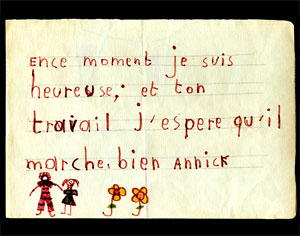 ENce moment je suis
heureuse; et ton
travail j'espere qu'il
marche. bien ANNicK